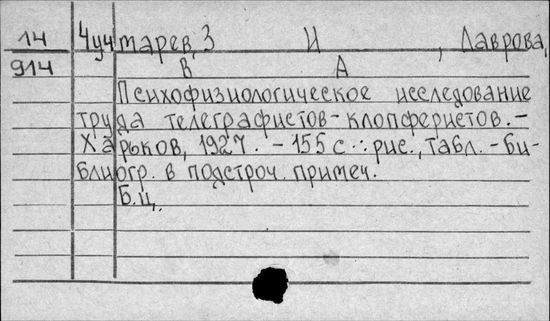 14 Чучмарев, З И , Лаврова,
914 В А
Психофизиологическое исследование
труда телеграфистов-клопферистов.-
Харьков, 1927. - 155 с.: рис., табл. - Би-
блиогр. в подстроч. примеч.
Б.ц.